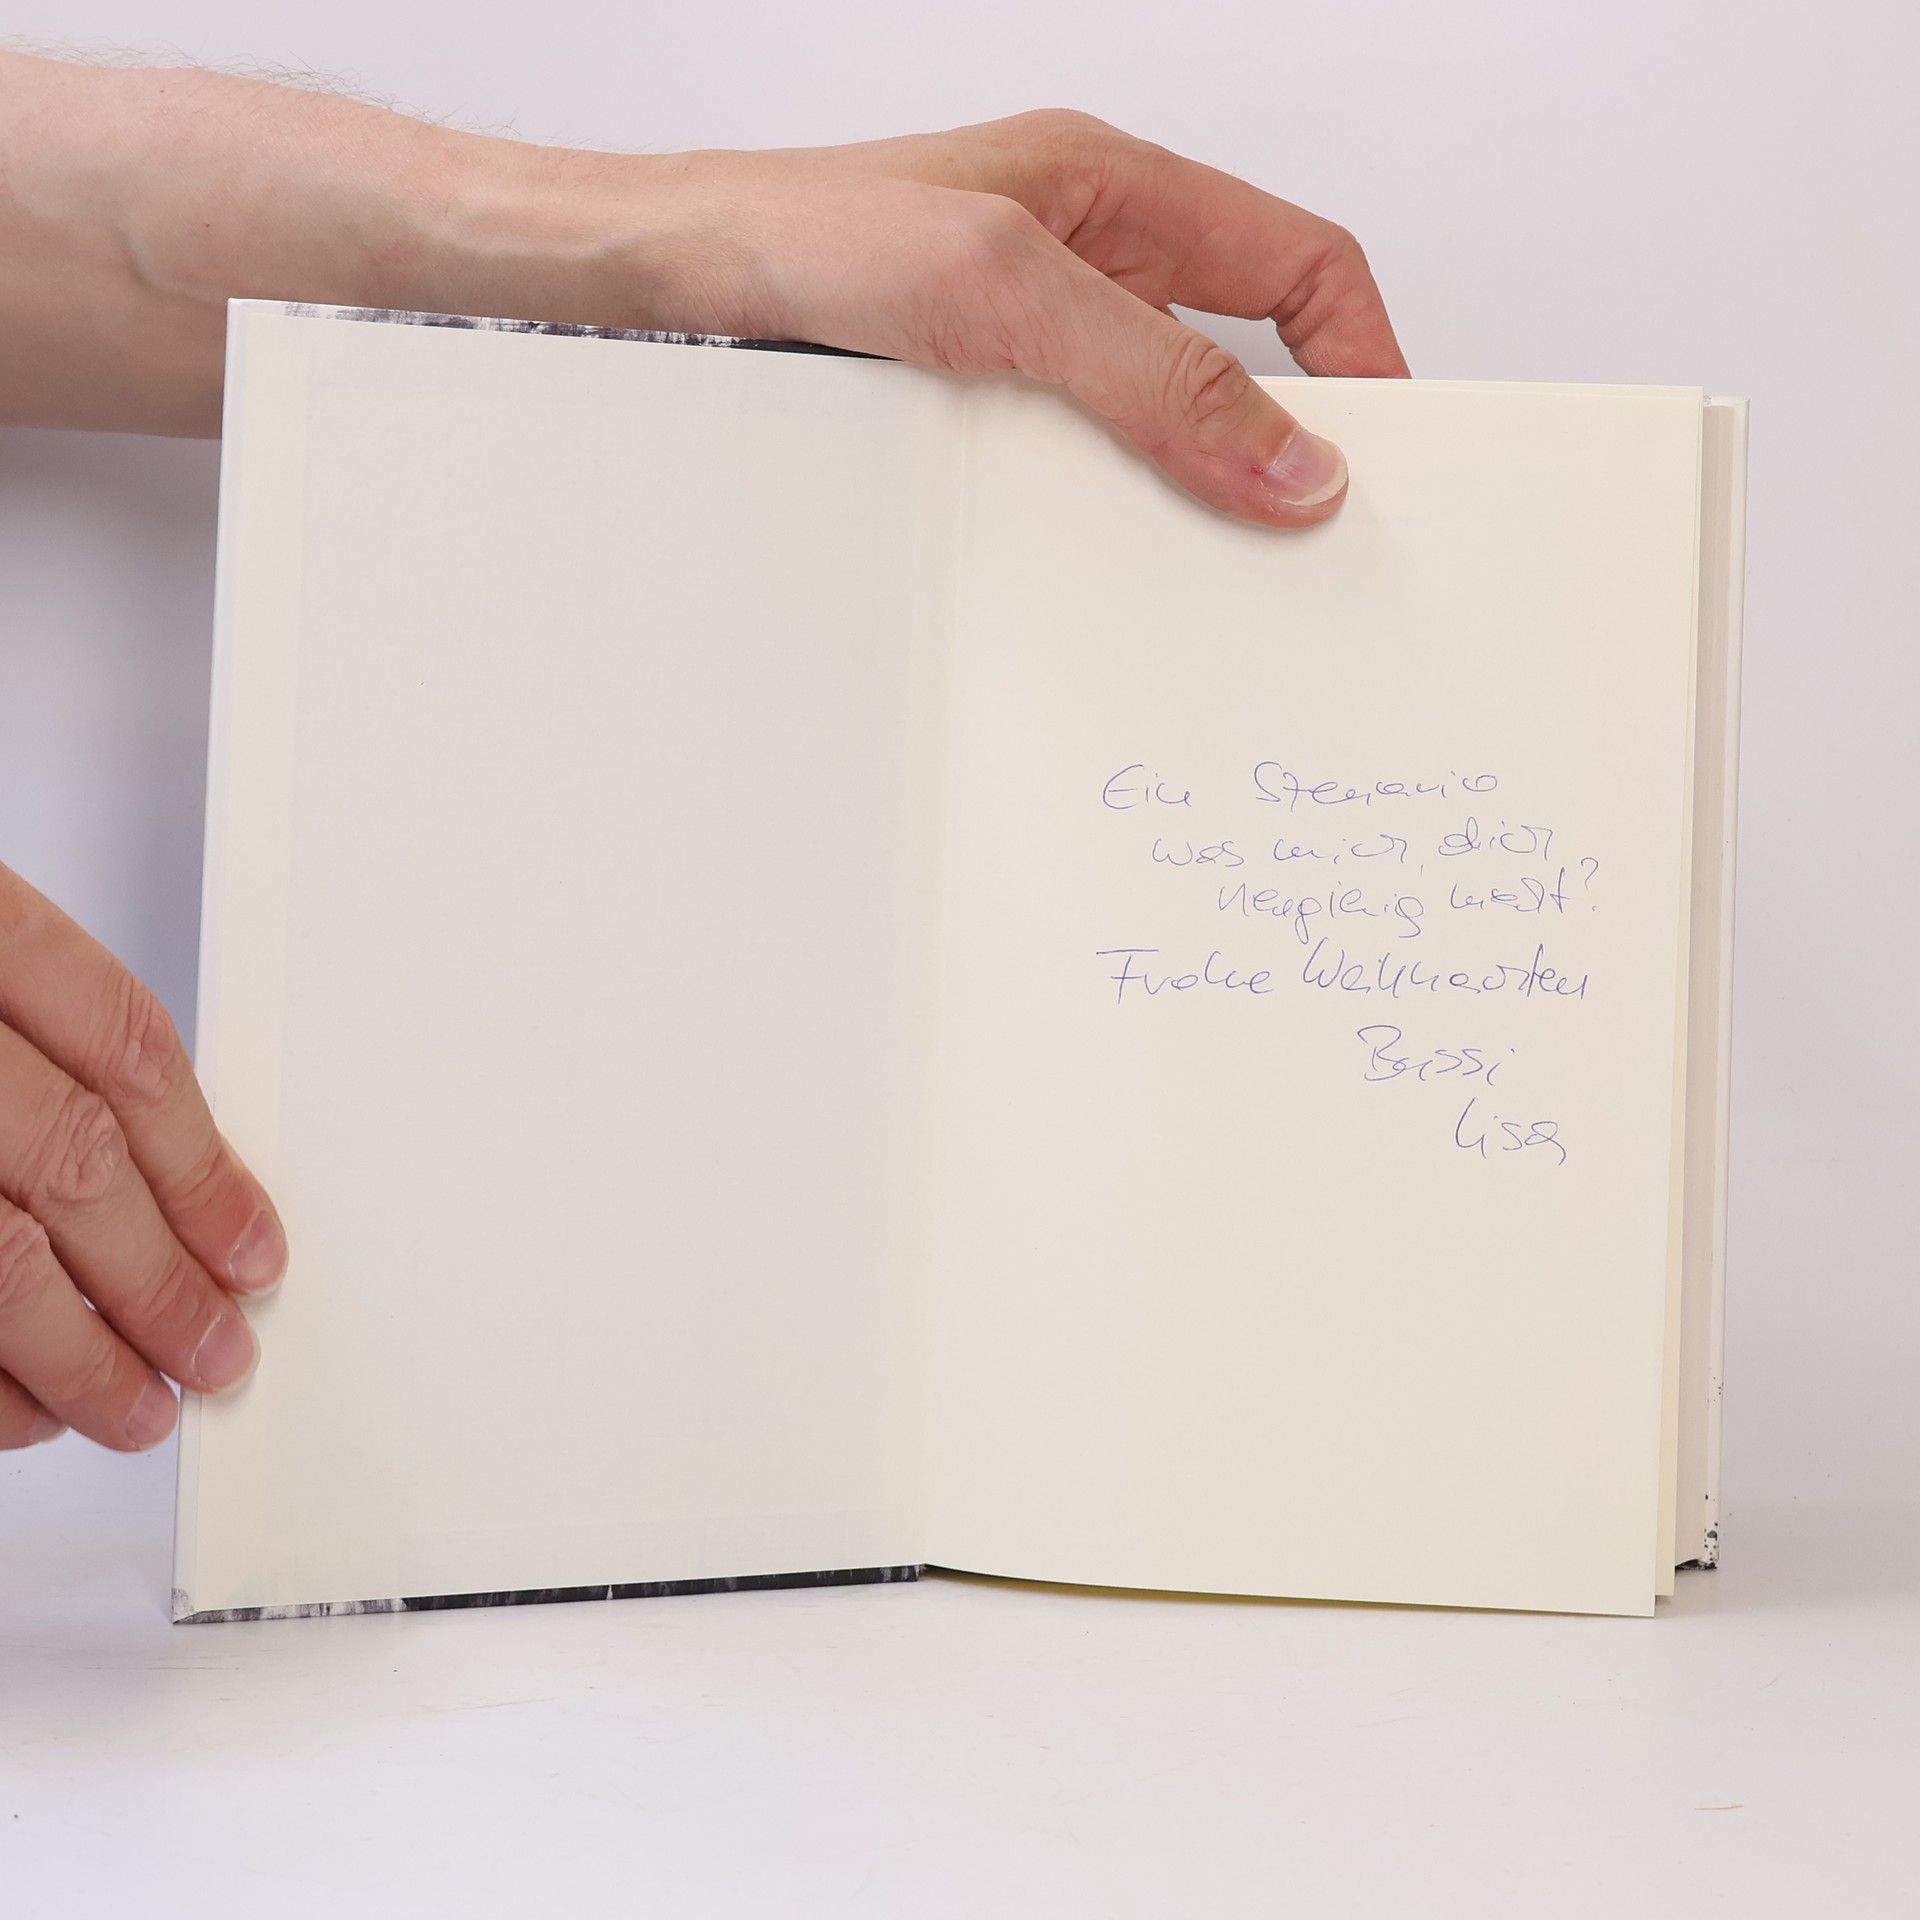 Ein Szenario
was mich, dich
neugierig macht?
Frohe Weihnachten
Bussi
Lisa